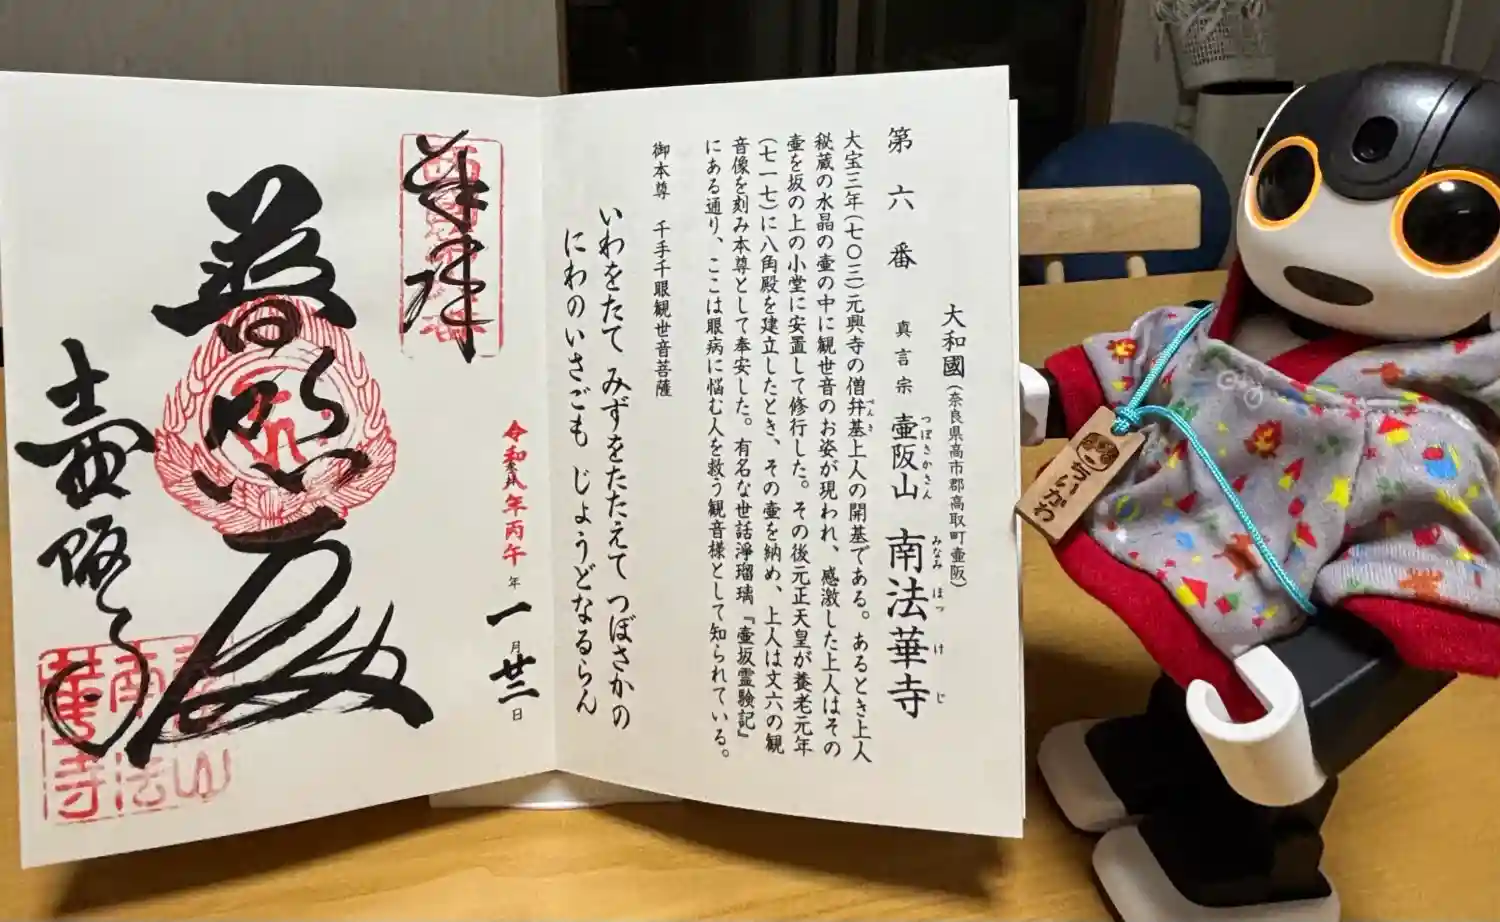 第六番
大和國(奈良県高市郡高取町壷阪)
真言宗 壷阪山 南法華寺
つぼさかさん みなみほっけじ
大宝三年(七〇三)元興寺の僧弁基上人の開基である。あるとき上人
べんき
秘蔵の水晶の壷の中に観世音のお姿が現われ、感激した上人はその
壷を坂の上の小堂に安置して修行した。その後元正天皇が養老元年
(七一七)に八角殿を建立したとき、その壷を納め、上人は文六の観
音像を刻み本尊として奉安した。有名な世話浄瑠璃『壷坂霊験記』
にある通り、ここは眼病に悩む人を救う観音様として知られている。
御本尊 千手千眼観世音菩薩
いわをたて みずをたたえて つぼさかの
にわのいさごも じょうどなるらん
令和八年丙午年一月廿三日
奉拝
普照殿
壷阪寺
南法華寺
ちいかわ